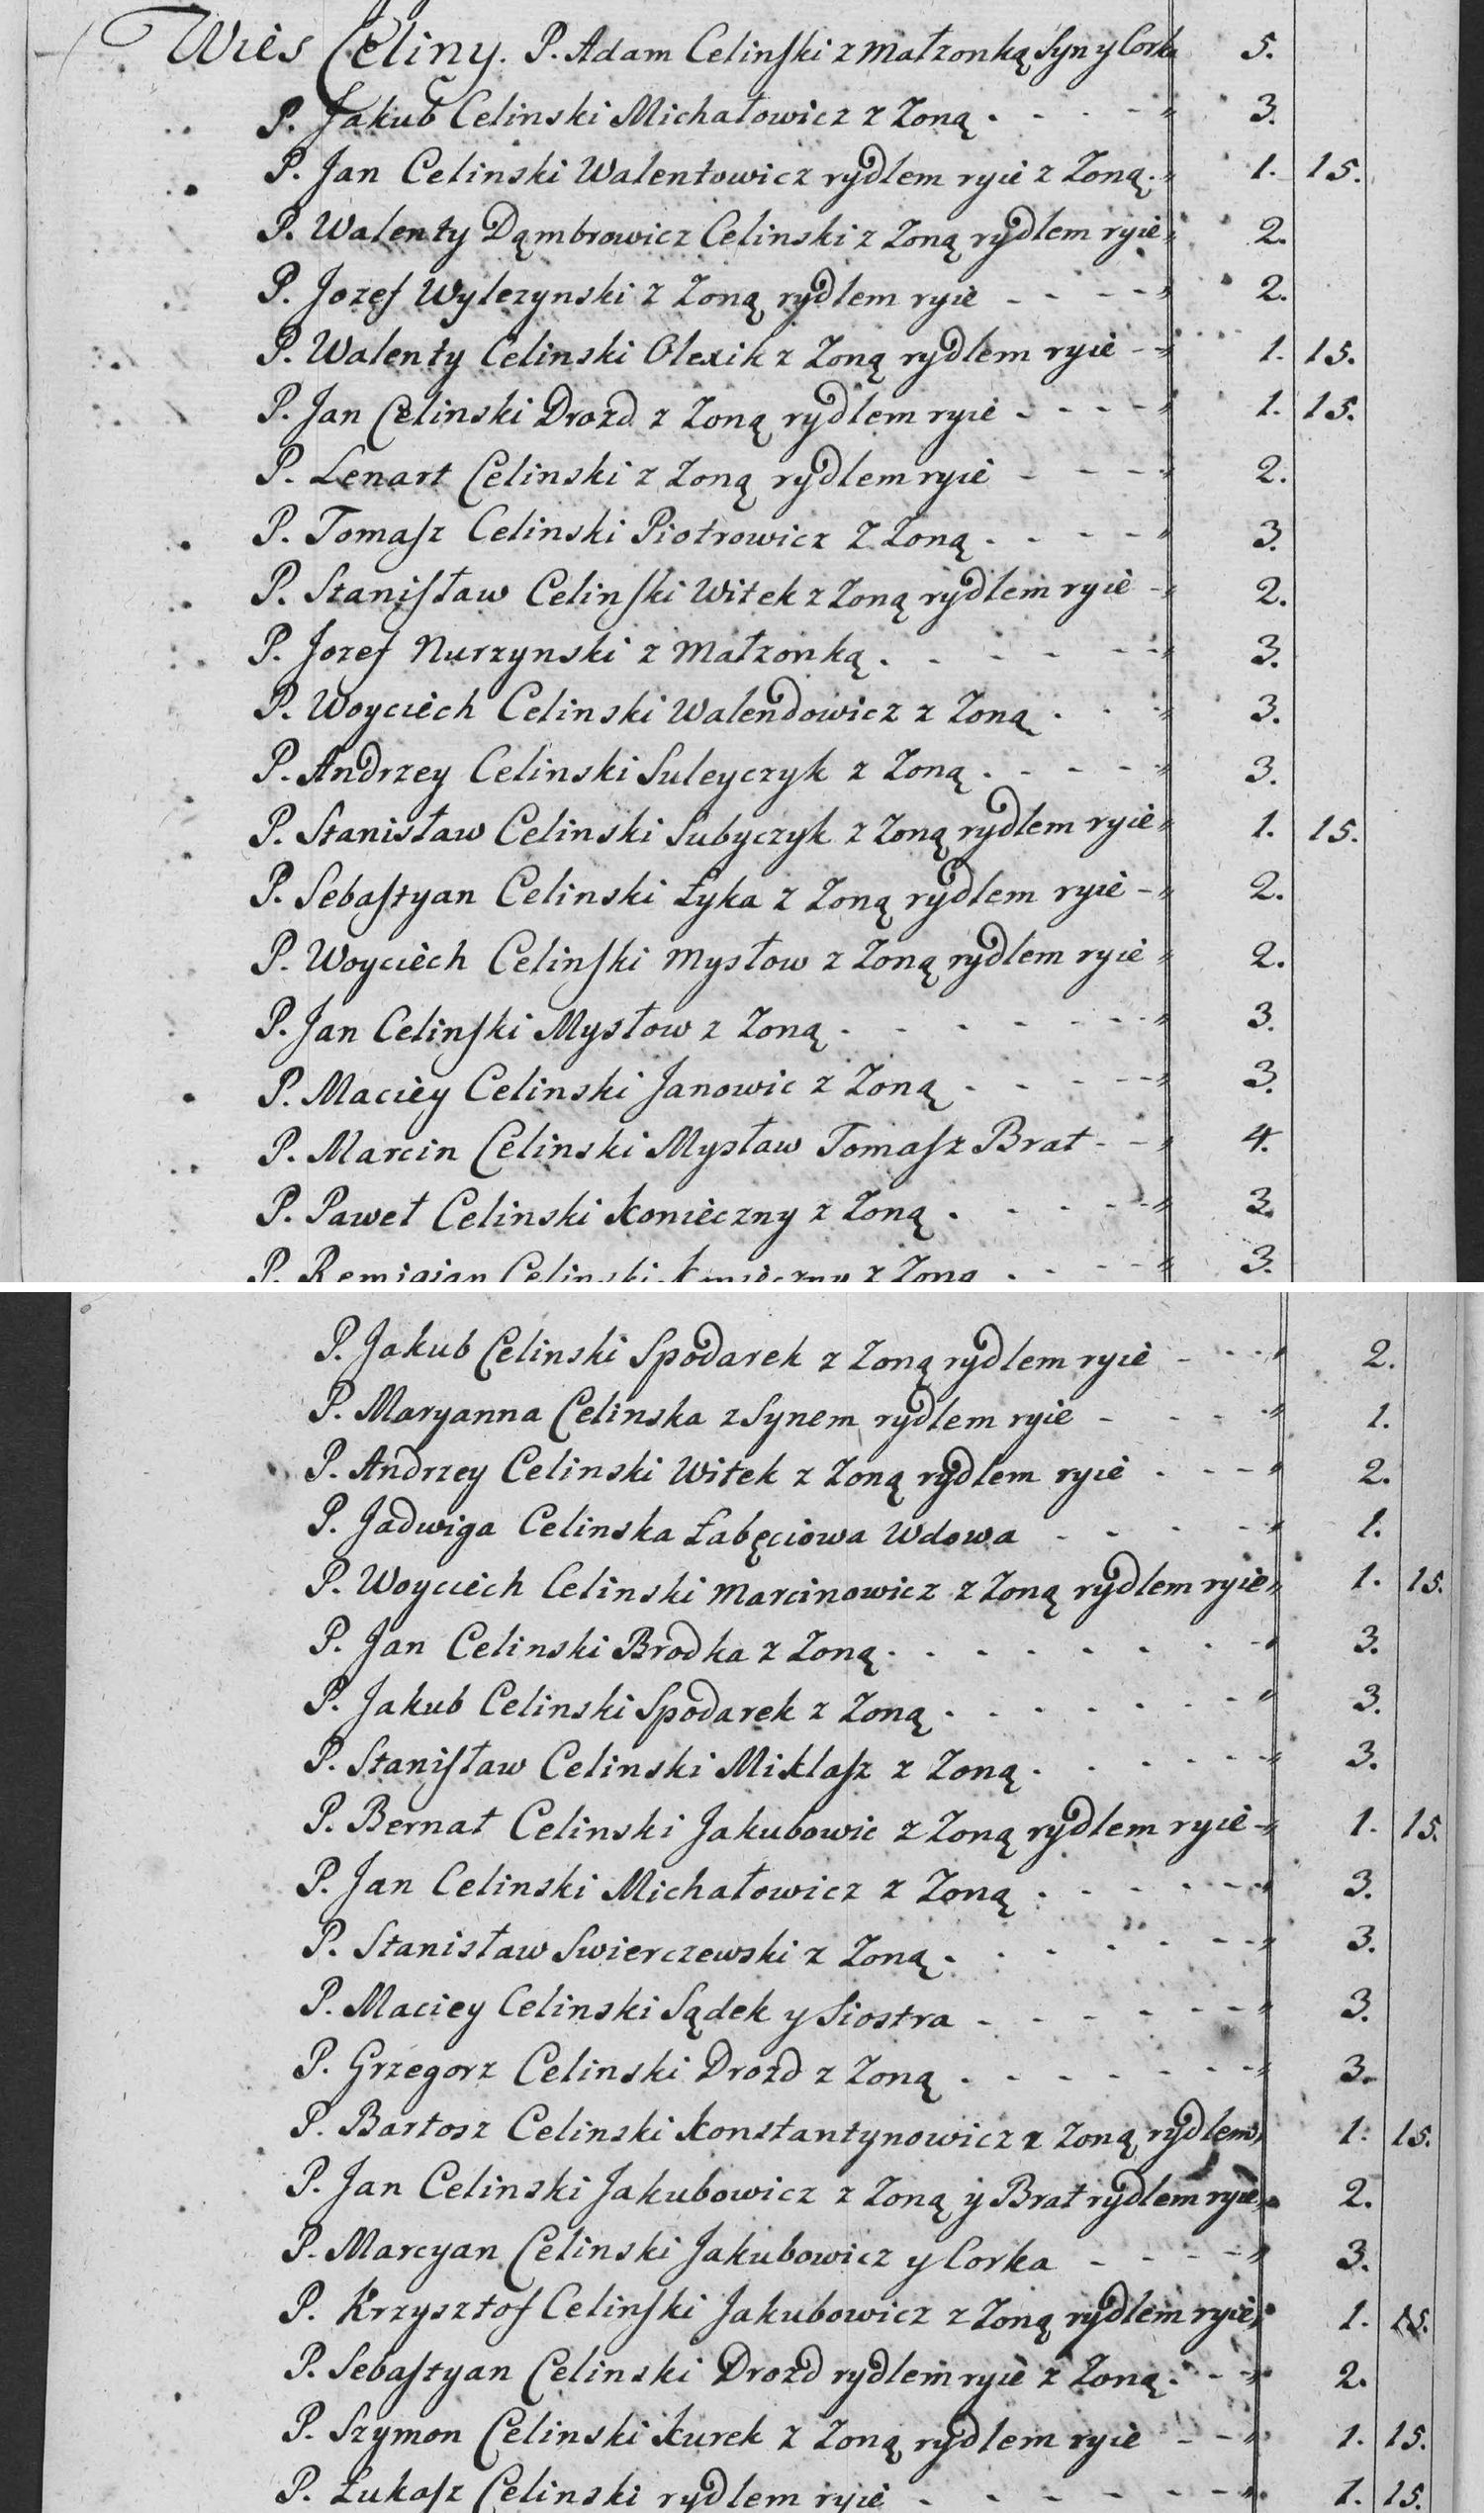 Wies Celiny. P. Adam Celinski z Małzonką Syn y Corka 5.
P. Jakub Celinski Michałowicz z Zoną 3.
P. Jan Celinski Walentowicz rydlem ryie z Zoną 1. 15.
P. Walenty Dąmbrowicz Celinski z Zoną rydlem ryie 2.
P. Jozef Wylezynski z Zoną rydlem ryie 2.
P. Walenty Celinski Olexik z Zoną rydlem ryie 1. 15.
P. Jan Celinski Drozd z Zoną rydlem ryie 1. 15.
P. Lenart Celinski z Zoną rydlem ryie 2.
P. Tomasz Celinski Piotrowicz z Zoną 3.
P. Stanisław Celinski Witek z Zoną rydlem ryie 2.
P. Jozef Nurzynski z Małzonką 3.
P. Woyciech Celinski Walendowicz z Zoną 3.
P. Andrzey Celinski Suleyczyk z Zoną 3.
P. Stanisław Celinski Subyczyk z Zoną rydlem ryie 1. 15.
P. Sebastyan Celinski Łyka z Zoną rydlem ryie 2.
P. Woyciech Celinski Mysłow z Zoną rydlem ryie 2.
P. Jan Celinski Mysłow z Zoną 3.
P. Maciey Celinski Janowic z Zoną 3.
P. Marcin Celinski Mysław Tomasz Brat 4.
P. Paweł Celinski Konieczny z Zoną 3.
P. Remigian Celinski Konieczny z Zoną 3.
P. Jakub Celinski Spodarek z Zoną rydlem ryie 2.
P. Maryanna Celinska z Synem rydlem ryie 1.
P. Andrzey Celinski Witek z Zoną rydlem ryie 2.
P. Jadwiga Celinska Łabęciowa Wdowa 1.
P. Woyciech Celinski Marcinowicz z Zoną rydlem ryie 1. 15.
P. Jan Celinski Brodka z Zoną 3.
P. Jakub Celinski Spodarek z Zoną 3.
P. Stanisław Celinski Miklasz z Zoną 3.
P. Bernat Celinski Jakubowic z Zoną rydlem ryie 1. 15.
P. Jan Celinski Michałowicz z Zoną 3.
P. Stanisław Swierczewski z Zoną 3.
P. Maciey Celinski Sądek y Siostra 3.
P. Grzegorz Celinski Drozd z Zoną 3.
P. Bartosz Celinski Konstantynowicz z Zoną rydlem 1. 15.
P. Jan Celinski Jakubowicz z Zoną y Brat rydlem ryie 2.
P. Marcyan Celinski Jakubowicz y Corka 3.
P. Krzysztof Celinski Jakubowicz z Zoną rydlem ryie 1. 15.
P. Sebastyan Celinski Drozd rydlem ryie z Zoną 2.
P. Szymon Celinski Kurek z Zoną rydlem ryie 1. 15.
P. Łukasz Celinski rydlem ryie 1. 15.